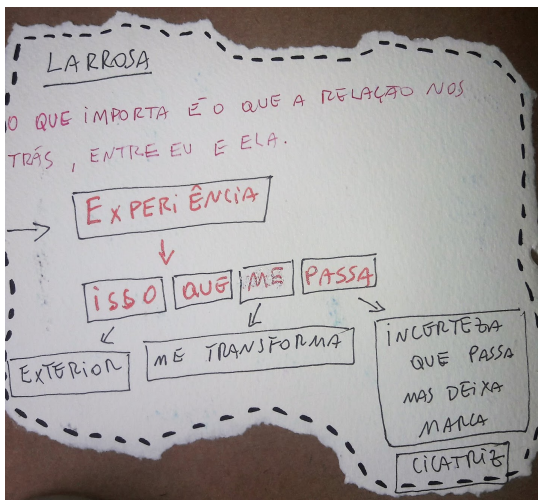 LARROSA
O QUE IMPORTA É O QUE A RELAÇÃO NOS
TRÁS, ENTRE EU E ELA.
EXPERIÊNCIA
ISSO QUE ME PASSA
EXTERIOR
ME TRANSFORMA
INCERTEZA
QUE PASSA
MAS DEIXA
MARCA
CICATRIZ